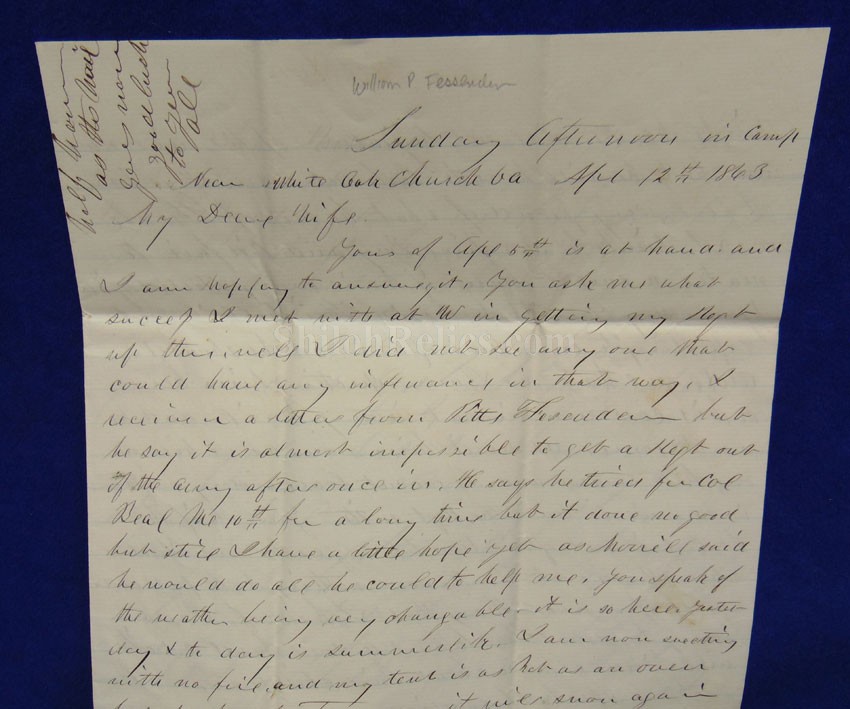 William P Fessenden
Sunday Afternoon in Camp
Near White Oak Church Va Apl 12th 1863
My Dear Wife.
Yours of Apl 5th is at hand and
I am happy to answer it. You ask me what
success I met with at W in getting my Regt
up this well I did not see any one that
could have any influence in that way. I
receiven a letter from Pitts Fesenden but
he say it is almost impossible to get a Regt out
of the army after once in. He says he tried for Col
Beal Me 10th for a long time but it done no good
but still I have a little hope yet as Morrill said
he would do all he could to help me. You speak of
the weather being very changable - it is so here. yester
day & to day is summerlike. I am now sweting
with no fire. and my tent is as hot as an oven
it will snow again in
help from
as the mail
goes now
good luck
to you
all
ShilohRelics.com